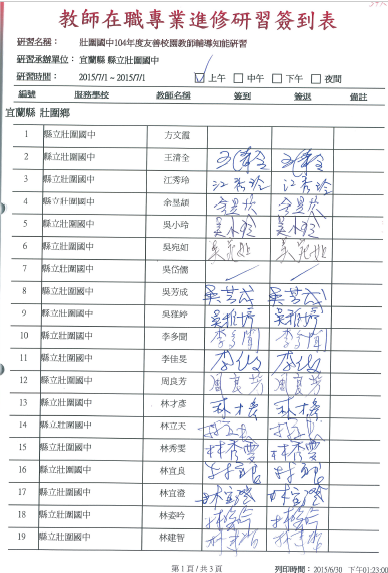 教師在職專業進修研習簽到表
研習名稱： 壯圍國中104年度友善校園教師輔導知能研習
研習承辦單位： 宜蘭縣 縣立壯圍國中
研習時間： 2015/7/1 ~ 2015/7/1 上午 中午 下午 夜間
編號 服務學校 教師名稱 簽到 簽退 備註
宜蘭縣 壯圍鄉
1 縣立壯圍國中 方文霞
2 縣立壯圍國中 王清全 王清全 王清全
3 縣立壯圍國中 江秀玲 江秀玲 江秀玲
4 縣立壯圍國中 余昱頡
5 縣立壯圍國中 吳小玲 吳小玲 吳小玲
6 縣立壯圍國中 吳宛如 吳宛如 吳宛如
7 縣立壯圍國中 吳岱儒
8 縣立壯圍國中 吳芳成 吳芳成 吳芳成
9 縣立壯圍國中 吳雅婷 吳雅婷 吳雅婷
10 縣立壯圍國中 李多聞
11 縣立壯圍國中 李佳旻
12 縣立壯圍國中 周良芳 周良芳 周良芳
13 縣立壯圍國中 林才彥
14 縣立壯圍國中 林立天
15 縣立壯圍國中 林秀雯 林秀雯 林秀雯
16 縣立壯圍國中 林宜良
17 縣立壯圍國中 林宜澄
18 縣立壯圍國中 林姿吟
19 縣立壯圍國中 林建智
第 1 頁 / 共 3 頁 列印時間： 2015/6/30 下午 01:23:00